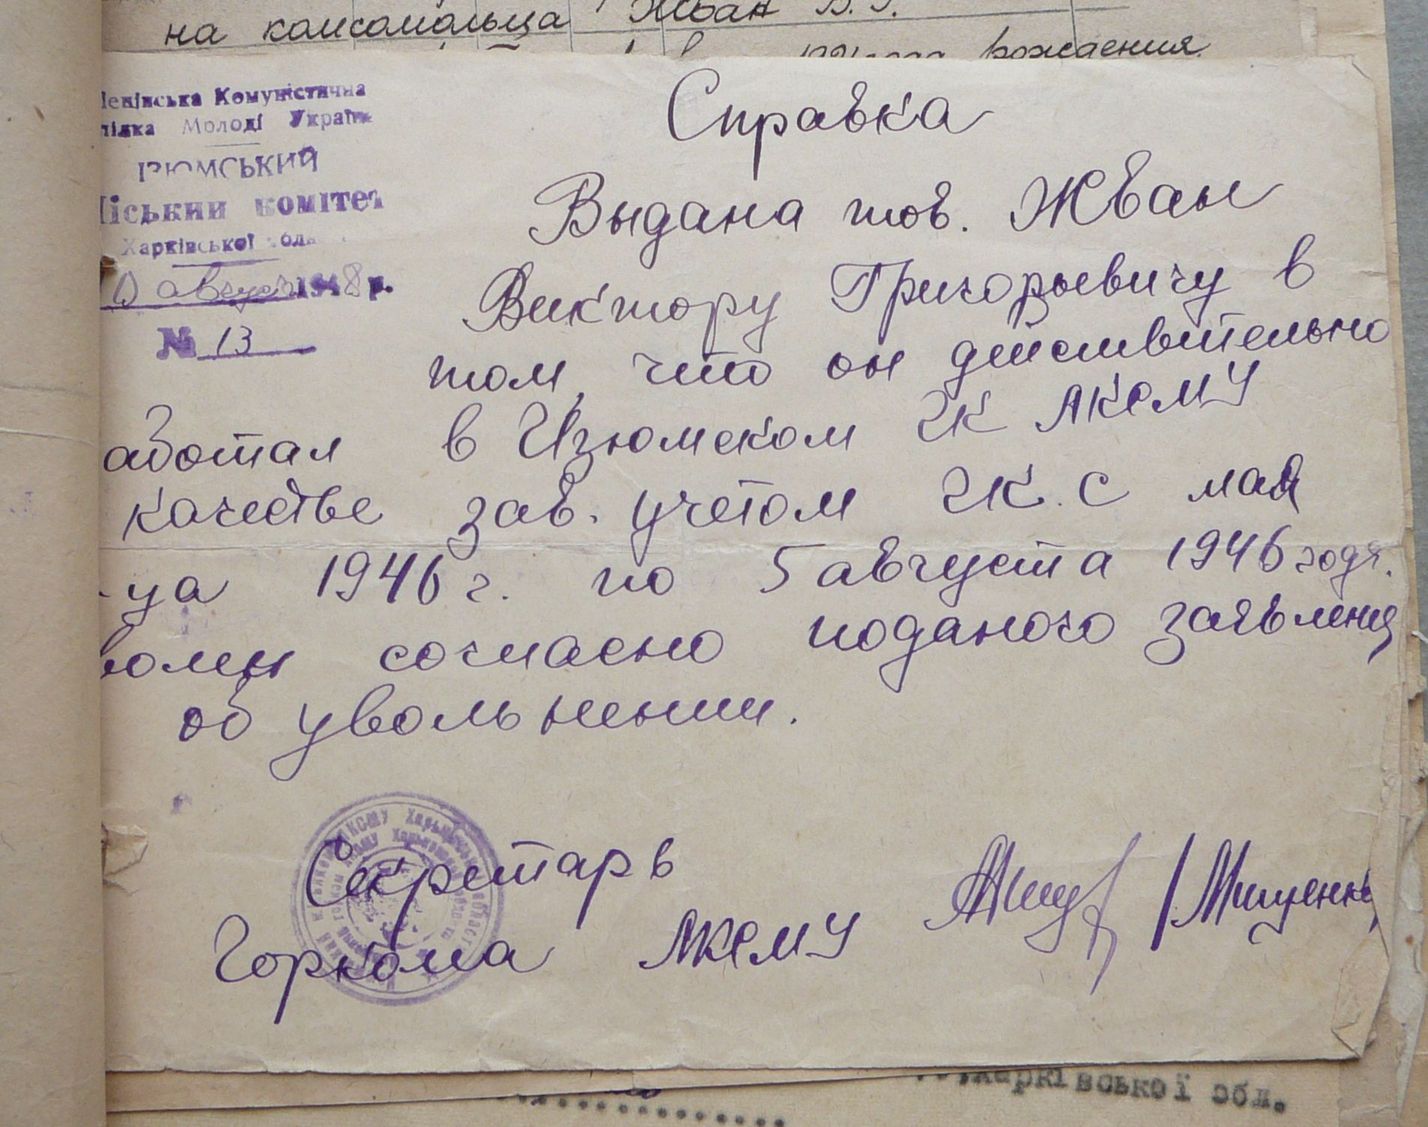 на комсомольца Жван В.Г.
рождения
Ленінська Комуністична
пілка Молоді України
ІЗЮМСЬКИЙ
Міський комітет
Харківської обл
августа 1948 р.
№ 13
Справка
Выдана тов. Жван
Виктору Григорьевичу в
том, что он действительно
аботал в Изюмском ГК ЛКСМУ
качестве зав. учетом ГК. с мая
-ца 1946 г. по 5 августа 1946 года.
волен согласно поданого заявления
об увольнении.
Секретарь
Горкома ЛКСМУ /Мищенко/
Харківської обл.